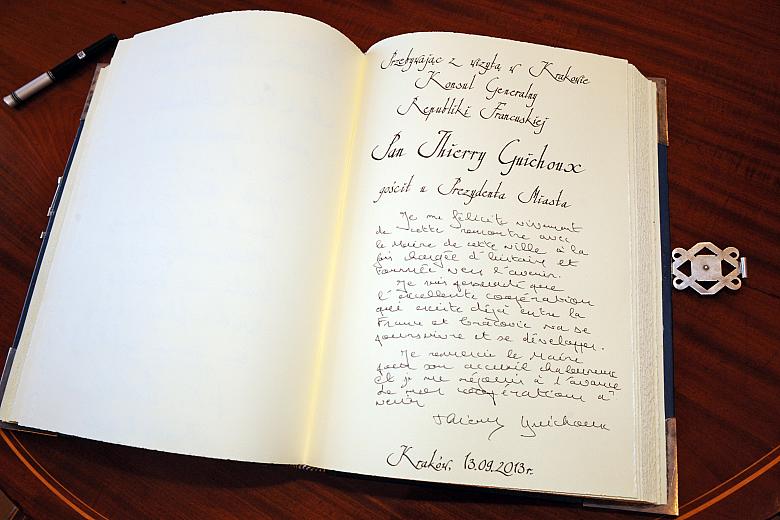 Przebywając z wizytą w Krakowie
Konsul Generalny
Republiki Francuskiej
Pan Thierry Guichoux
gościł u Prezydenta Miasta
Je me félicite vivement
de cette rencontre avec
le Maire de cette ville à la
fois chargée d'histoire et
tournée vers l'avenir.
Je suis persuadé que
l'excellente coopération
qui existe déjà entre la
France et Cracovie va se
poursuivre et se développer.
Je remercie le Maire
pour son accueil chaleureux
et je me réjouis à l'avance
de nos coopérations à
venir
Thierry Guichoux
Kraków, 13.09.2013r.